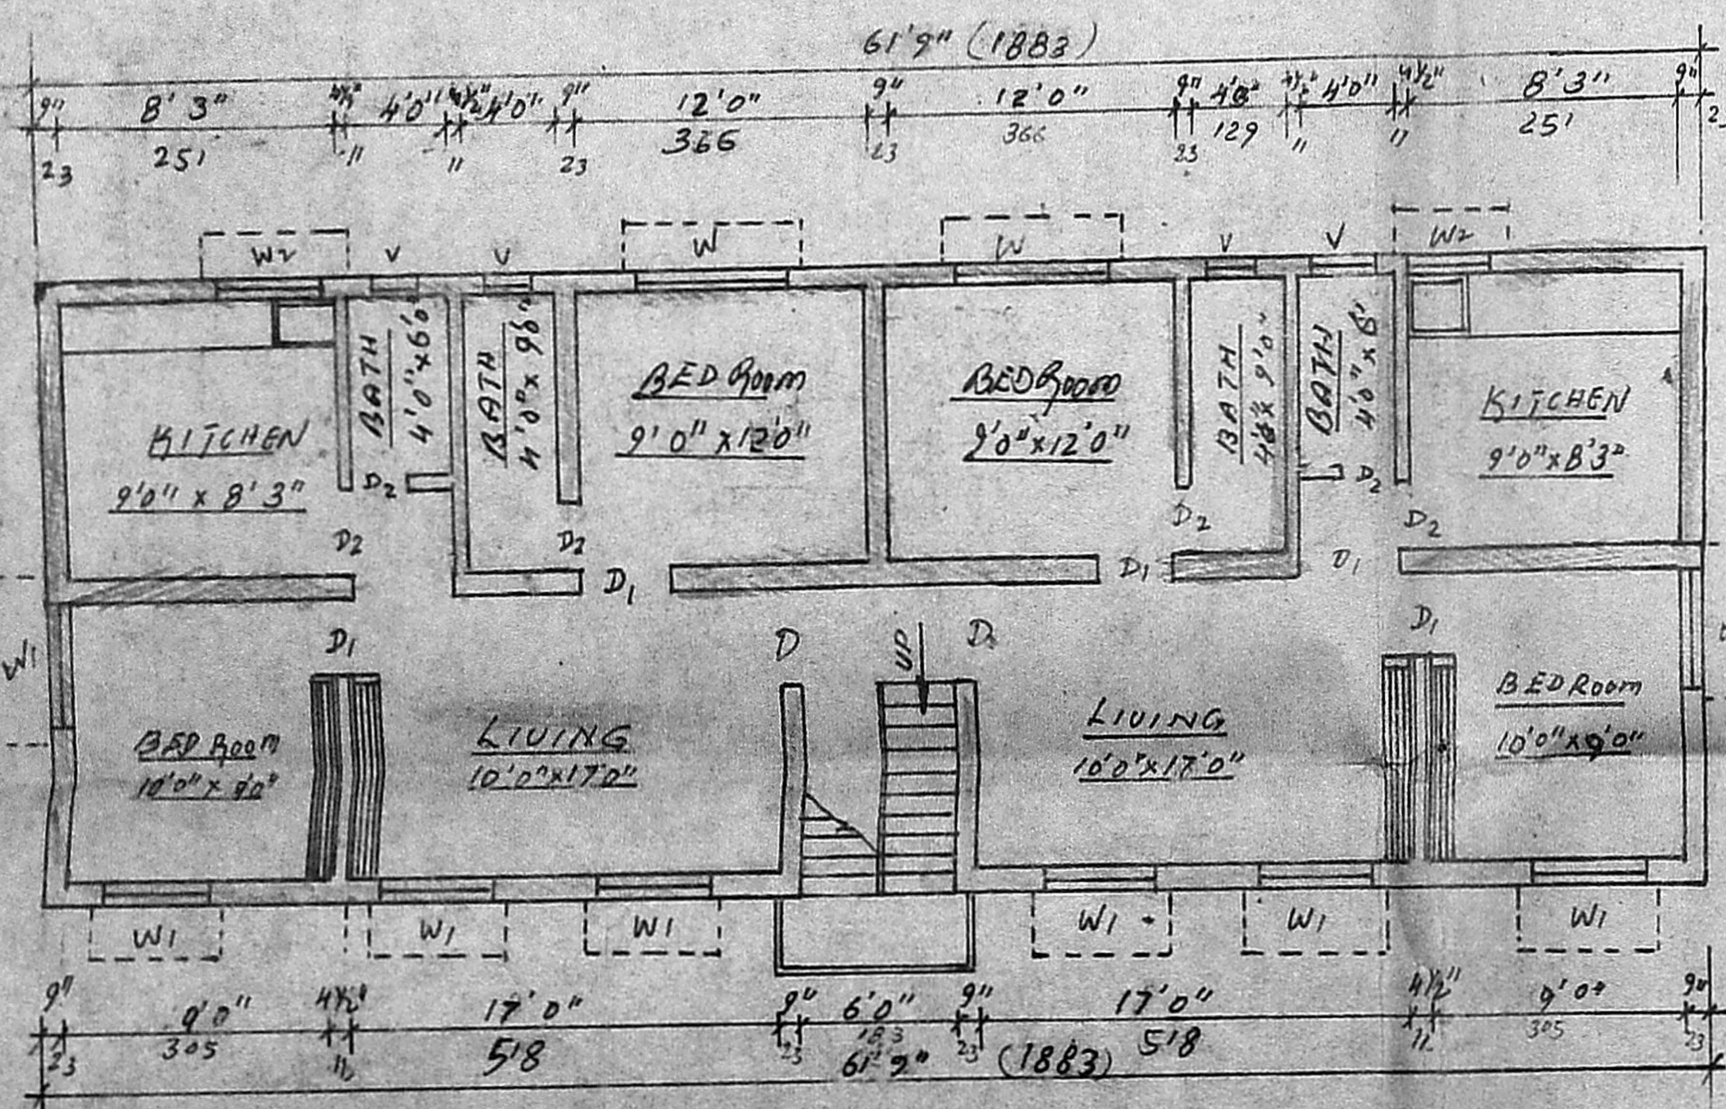 61'9" (1883)
9" 8'3" 4½" 4'0" 4½" 4'0" 9" 12'0" 9" 12'0" 9" 4½" 4'0" 4½" 8'3" 9"
23 251 11 11 23 366 23 366 23 129 11 11 251
W2 V V W W V V W2
KITCHEN
9'0" x 8'3"
BATH
4'0" x 6'0"
BATH
BED Room
9'0" x 12'0"
BED Room
9'0" x 12'0"
BATH
BATH
4'0" x 6'
KITCHEN
9'0" x 8'3"
D2 D2
D2 D2 D2 D2
D1 D1 D1
W1 D1 D UP D D1
BED Room
10'0" x 9'0"
LIVING
10'0" x 17'0"
LIVING
10'0" x 17'0"
BED Room
10'0" x 9'0"
W1 W1 W1 W1 W1 W1
9" 9'0" 4½" 17'0" 9" 6'0" 9" 17'0" 4½" 9'0" 9"
23 305 11 518 23 183 23 518 11 305 23
61'9" (1883)